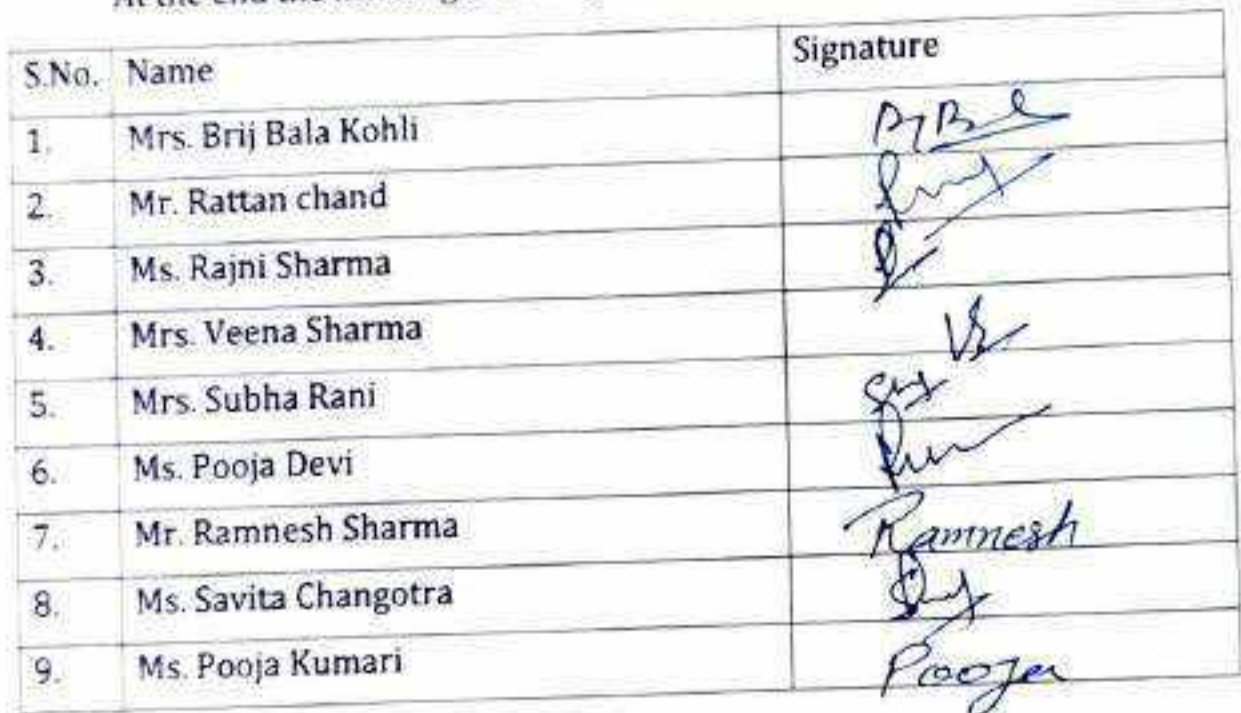 At the end the
S.No. Name Signature
1. Mrs. Brij Bala Kohli
2. Mr. Rattan chand
3. Ms. Rajni Sharma
4. Mrs. Veena Sharma VS
5. Mrs. Subha Rani
6. Ms. Pooja Devi
7. Mr. Ramnesh Sharma Ramnesh
8. Ms. Savita Changotra
9. Ms. Pooja Kumari Pooja